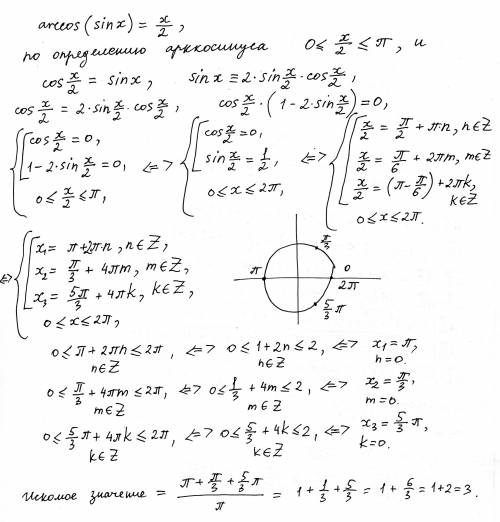 arccos(sinx) = x/2 ,
по определению арккосинуса 0 ≤ x/2 ≤ π , и
cos x/2 = sinx , sinx ≡ 2·sin x/2 · cos x/2 ,
cos x/2 = 2·sin x/2 · cos x/2 , cos x/2 · (1 − 2·sin x/2) = 0,
{ [ cos x/2 = 0, 1 − 2·sin x/2 = 0, 0 ≤ x/2 ≤ π, <=> { [ cos x/2 = 0, sin x/2 = 1/2, 0 ≤ x ≤ 2π, <=> { [ x/2 = π/2 + π·n, n∈Z x/2 = π/6 + 2πm, m∈Z x/2 = (π − π/6) + 2πk, k∈Z 0 ≤ x ≤ 2π.
<=> { [ x₁ = π + 2π·n, n∈Z,
x₂ = π/3 + 4πm, m∈Z,
x₃ = 5π/3 + 4πk, k∈Z,
0 ≤ x ≤ 2π,
π/3
π 0
2π
5/3 π
0 ≤ π + 2πn ≤ 2π , <=> 0 ≤ 1 + 2n ≤ 2 , <=> x₁ = π,
n∈Z n∈Z n = 0.
0 ≤ π/3 + 4πm ≤ 2π , <=> 0 ≤ 1/3 + 4m ≤ 2 , <=> x₂ = π/3 ,
m∈Z m∈Z m = 0.
0 ≤ 5/3 π + 4πk ≤ 2π , <=> 0 ≤ 5/3 + 4k ≤ 2 , <=> x₃ = 5/3 π ,
k∈Z k∈Z k = 0.
Искомое значение = (π + π/3 + 5/3 π)/π = 1 + 1/3 + 5/3 = 1 + 6/3 = 1+2 = 3 .